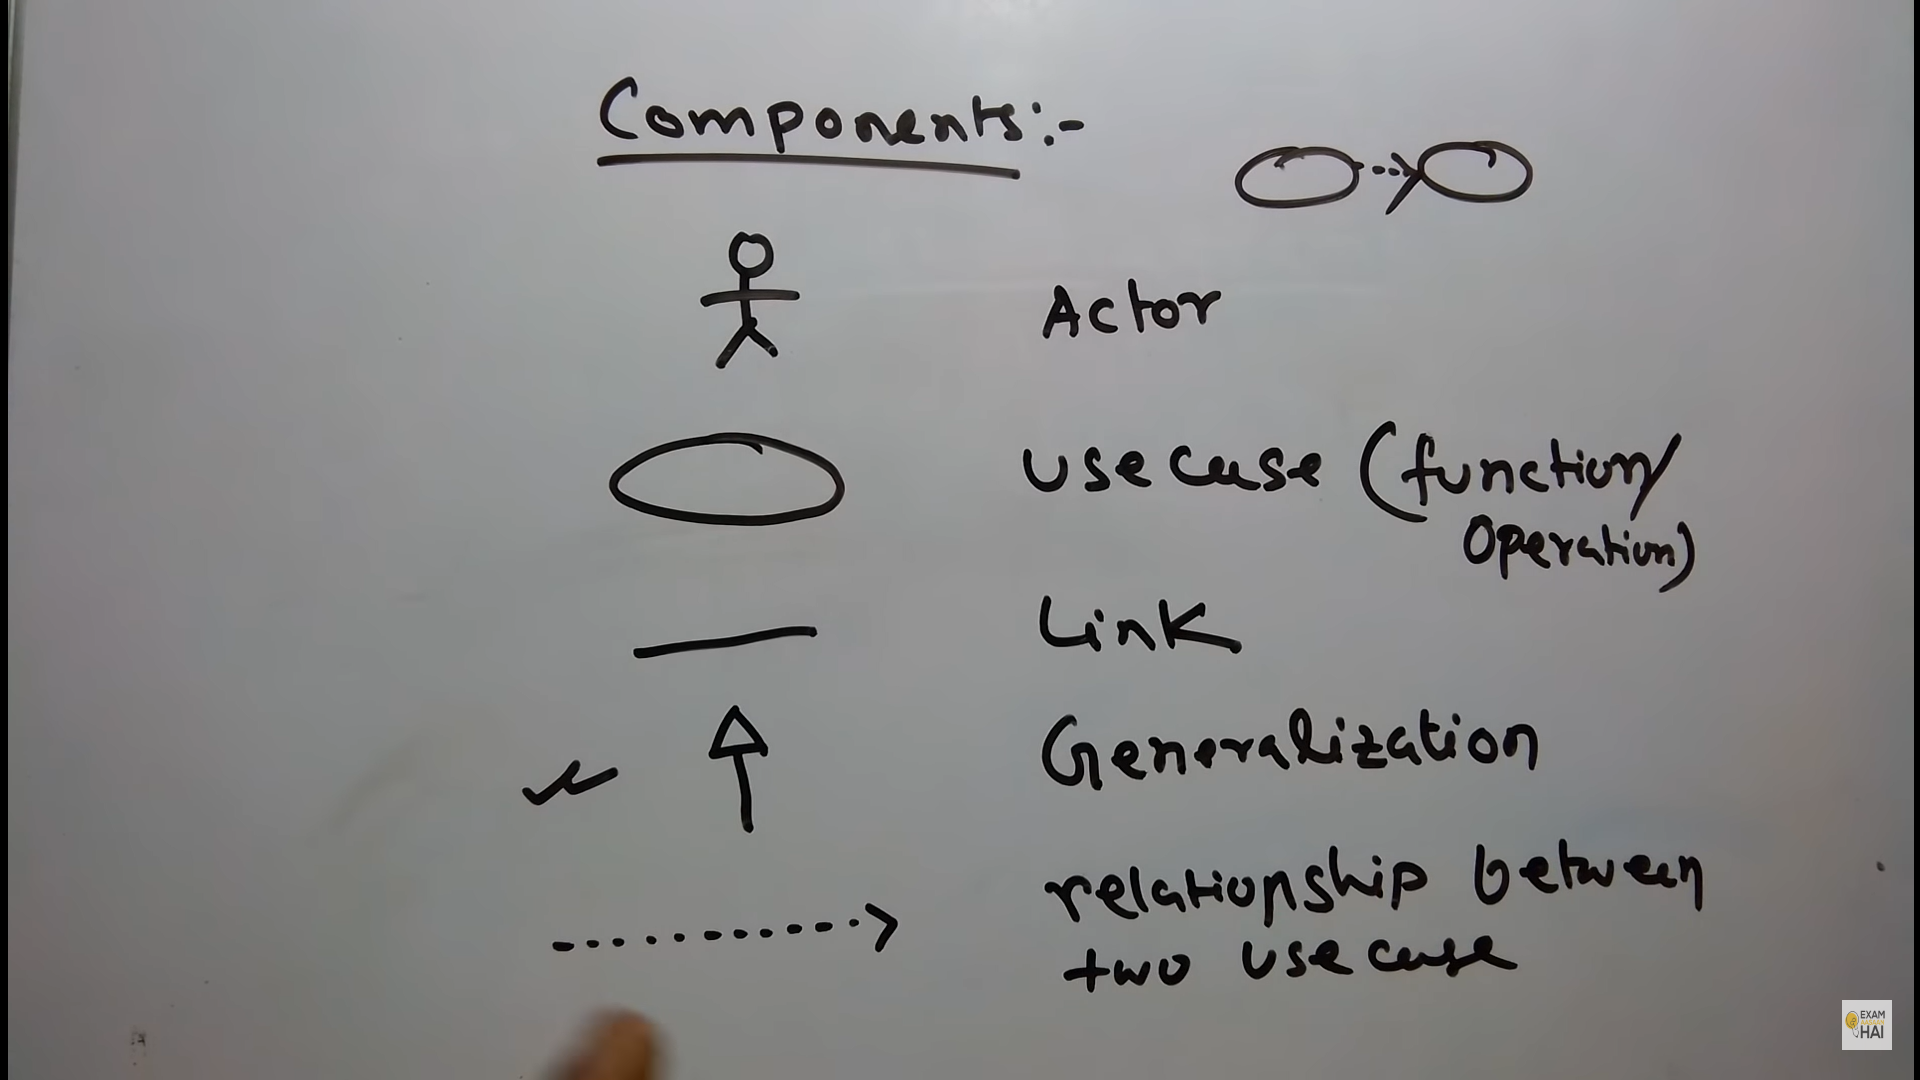 Components:-
Actor
usecase (function/
operation)
Link
Generalization
relationship between
two usecase
EXAM
HAI